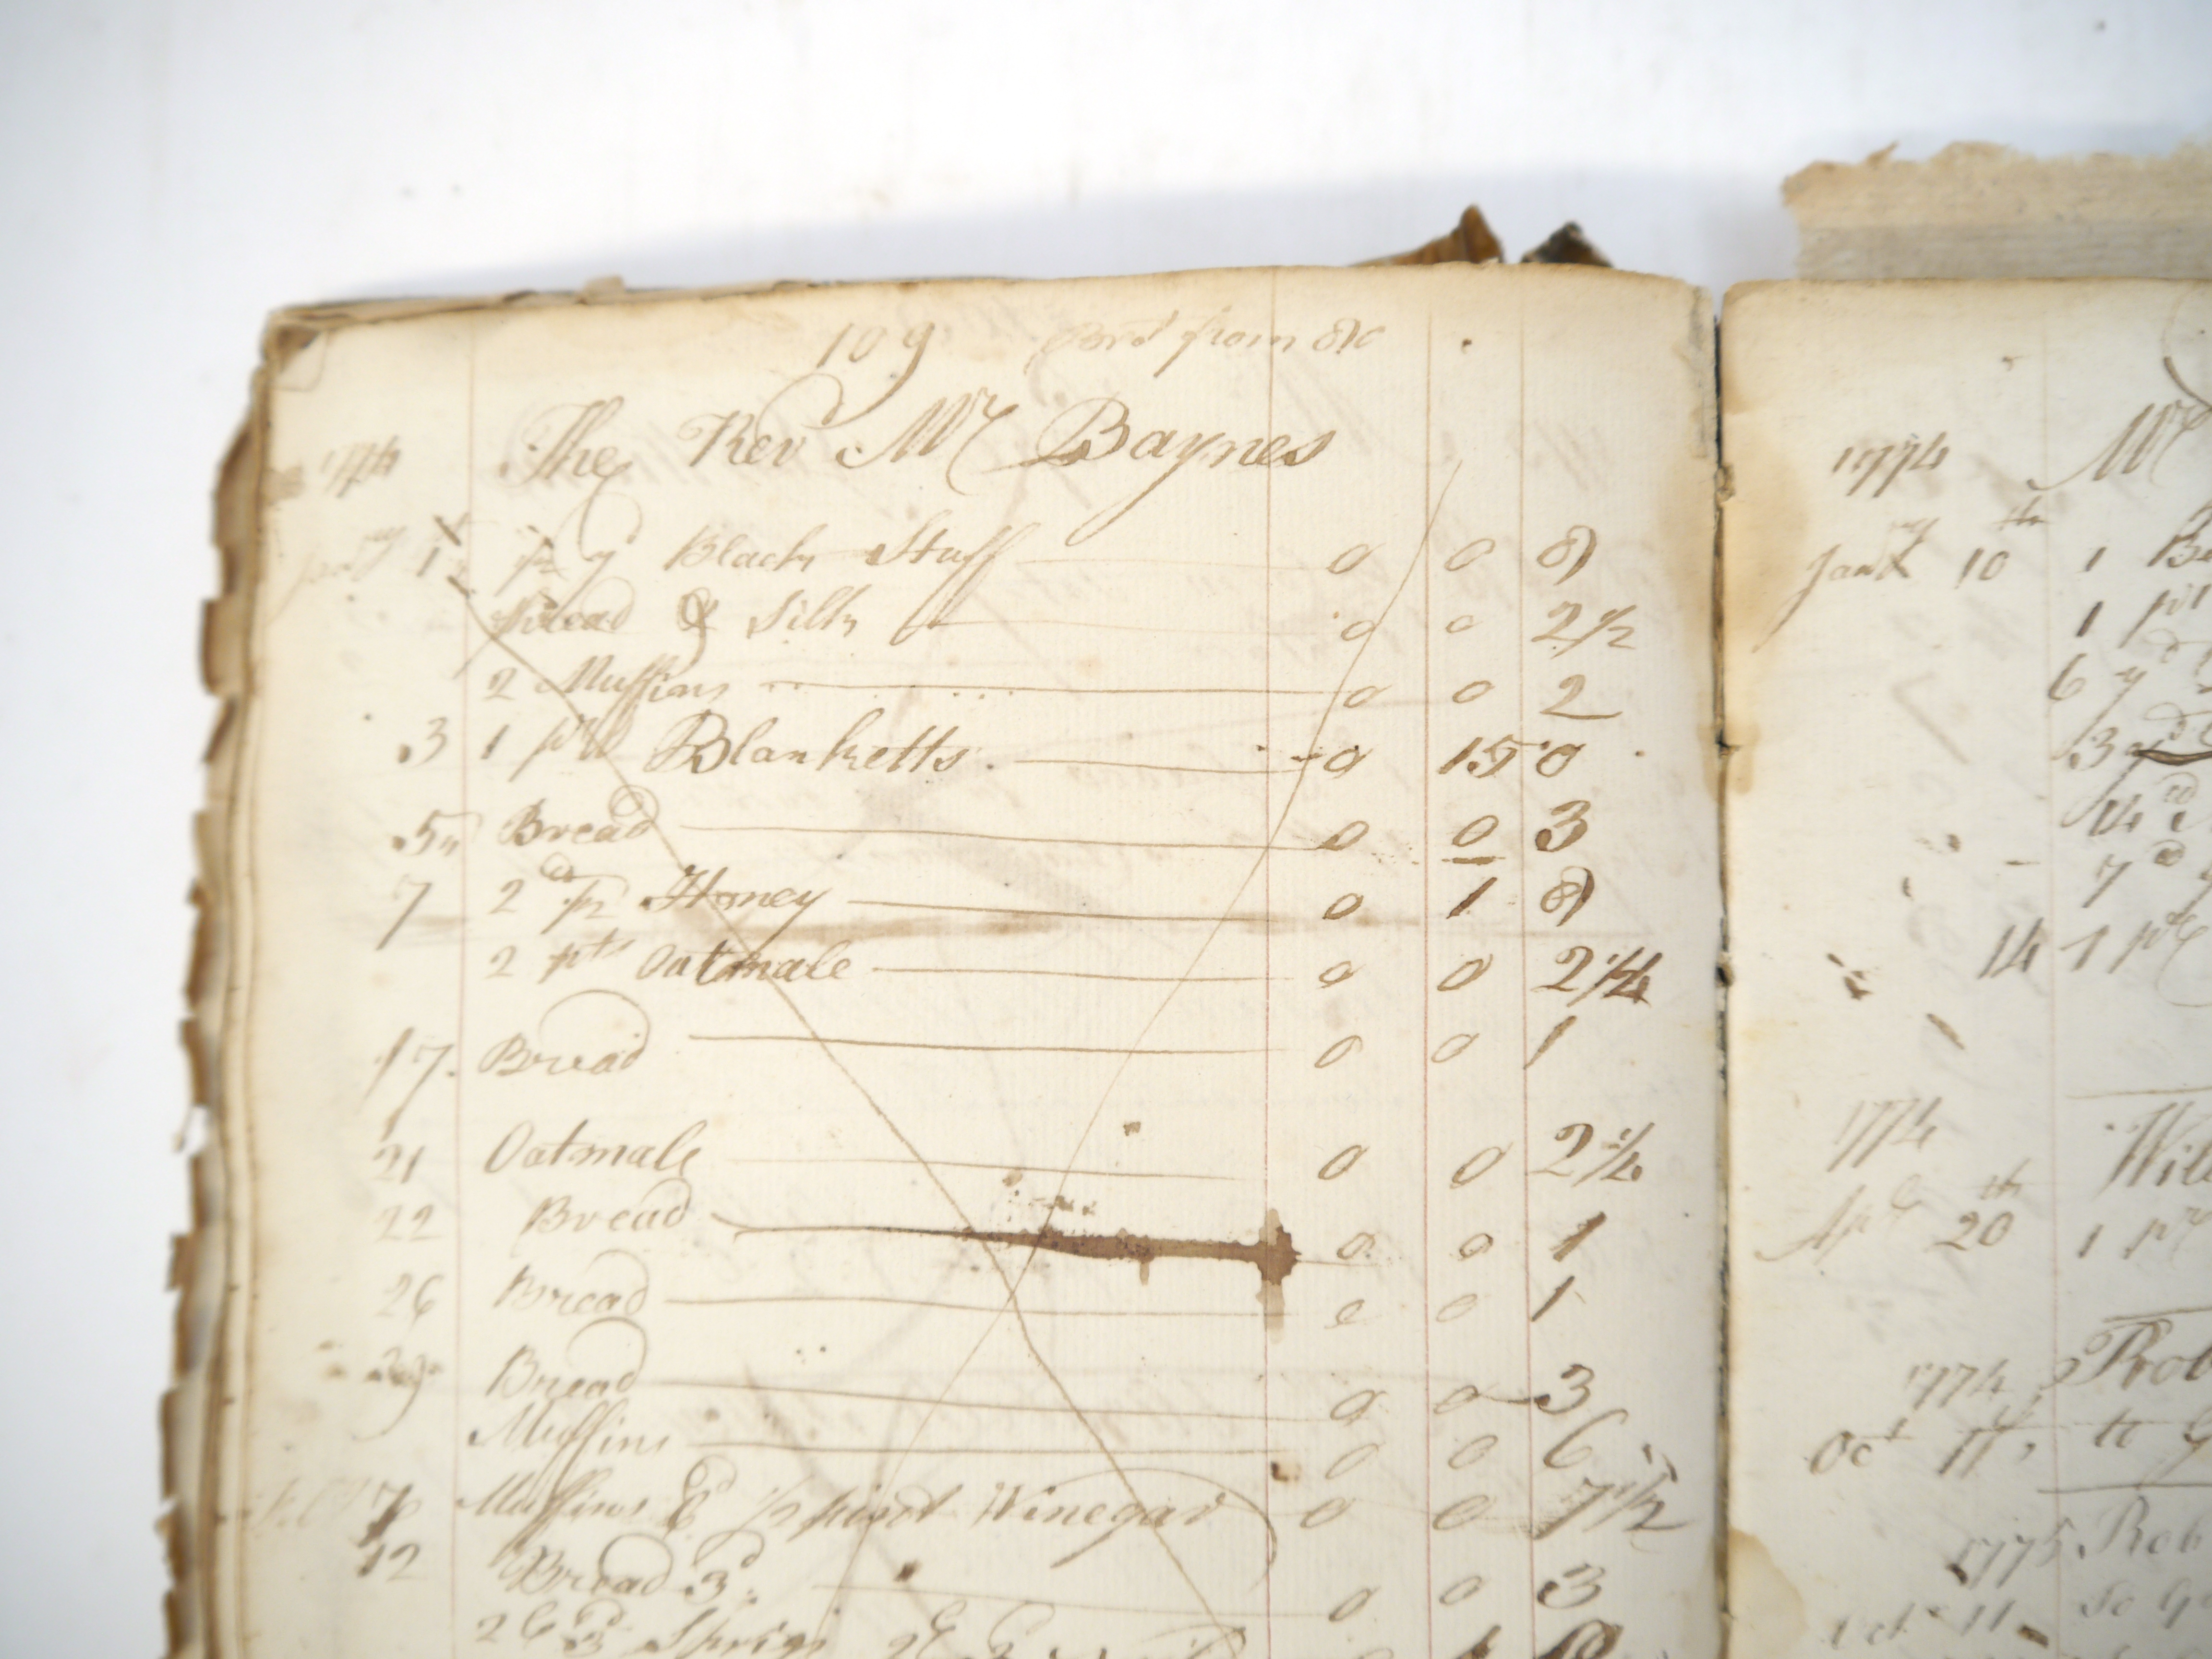 109 Brd from 86
1774 The Rev Mr Baynes
Jany 1 1/2 yd Black Stuff 0 0 8
Thread & Silk 0 0 2 1/2
2 Muffins 0 0 2
3 1 pr Blanketts 0 15 0
5 Bread 0 0 3
7 2 1/2 Honey 0 1 8
2 pts Oatmale 0 0 2 1/4
17 Bread 0 0 1
21 Oatmale 0 0 2 1/4
22 Bread 0 0 1
26 Bread 0 0 1
29 Bread 0 0 3
Muffins 0 0 6
7 Muffins & 1/2 pint Winegar 0 0 7 1/2
12 Bread 3d 0 0 3
1774 Mr
Jany 10th 1
1
6 yd
3 yd
14 1
1774 Will
Apl 20th 1 pr
1774 Rob
Oct 11
1775 Rob
Oct 11 to